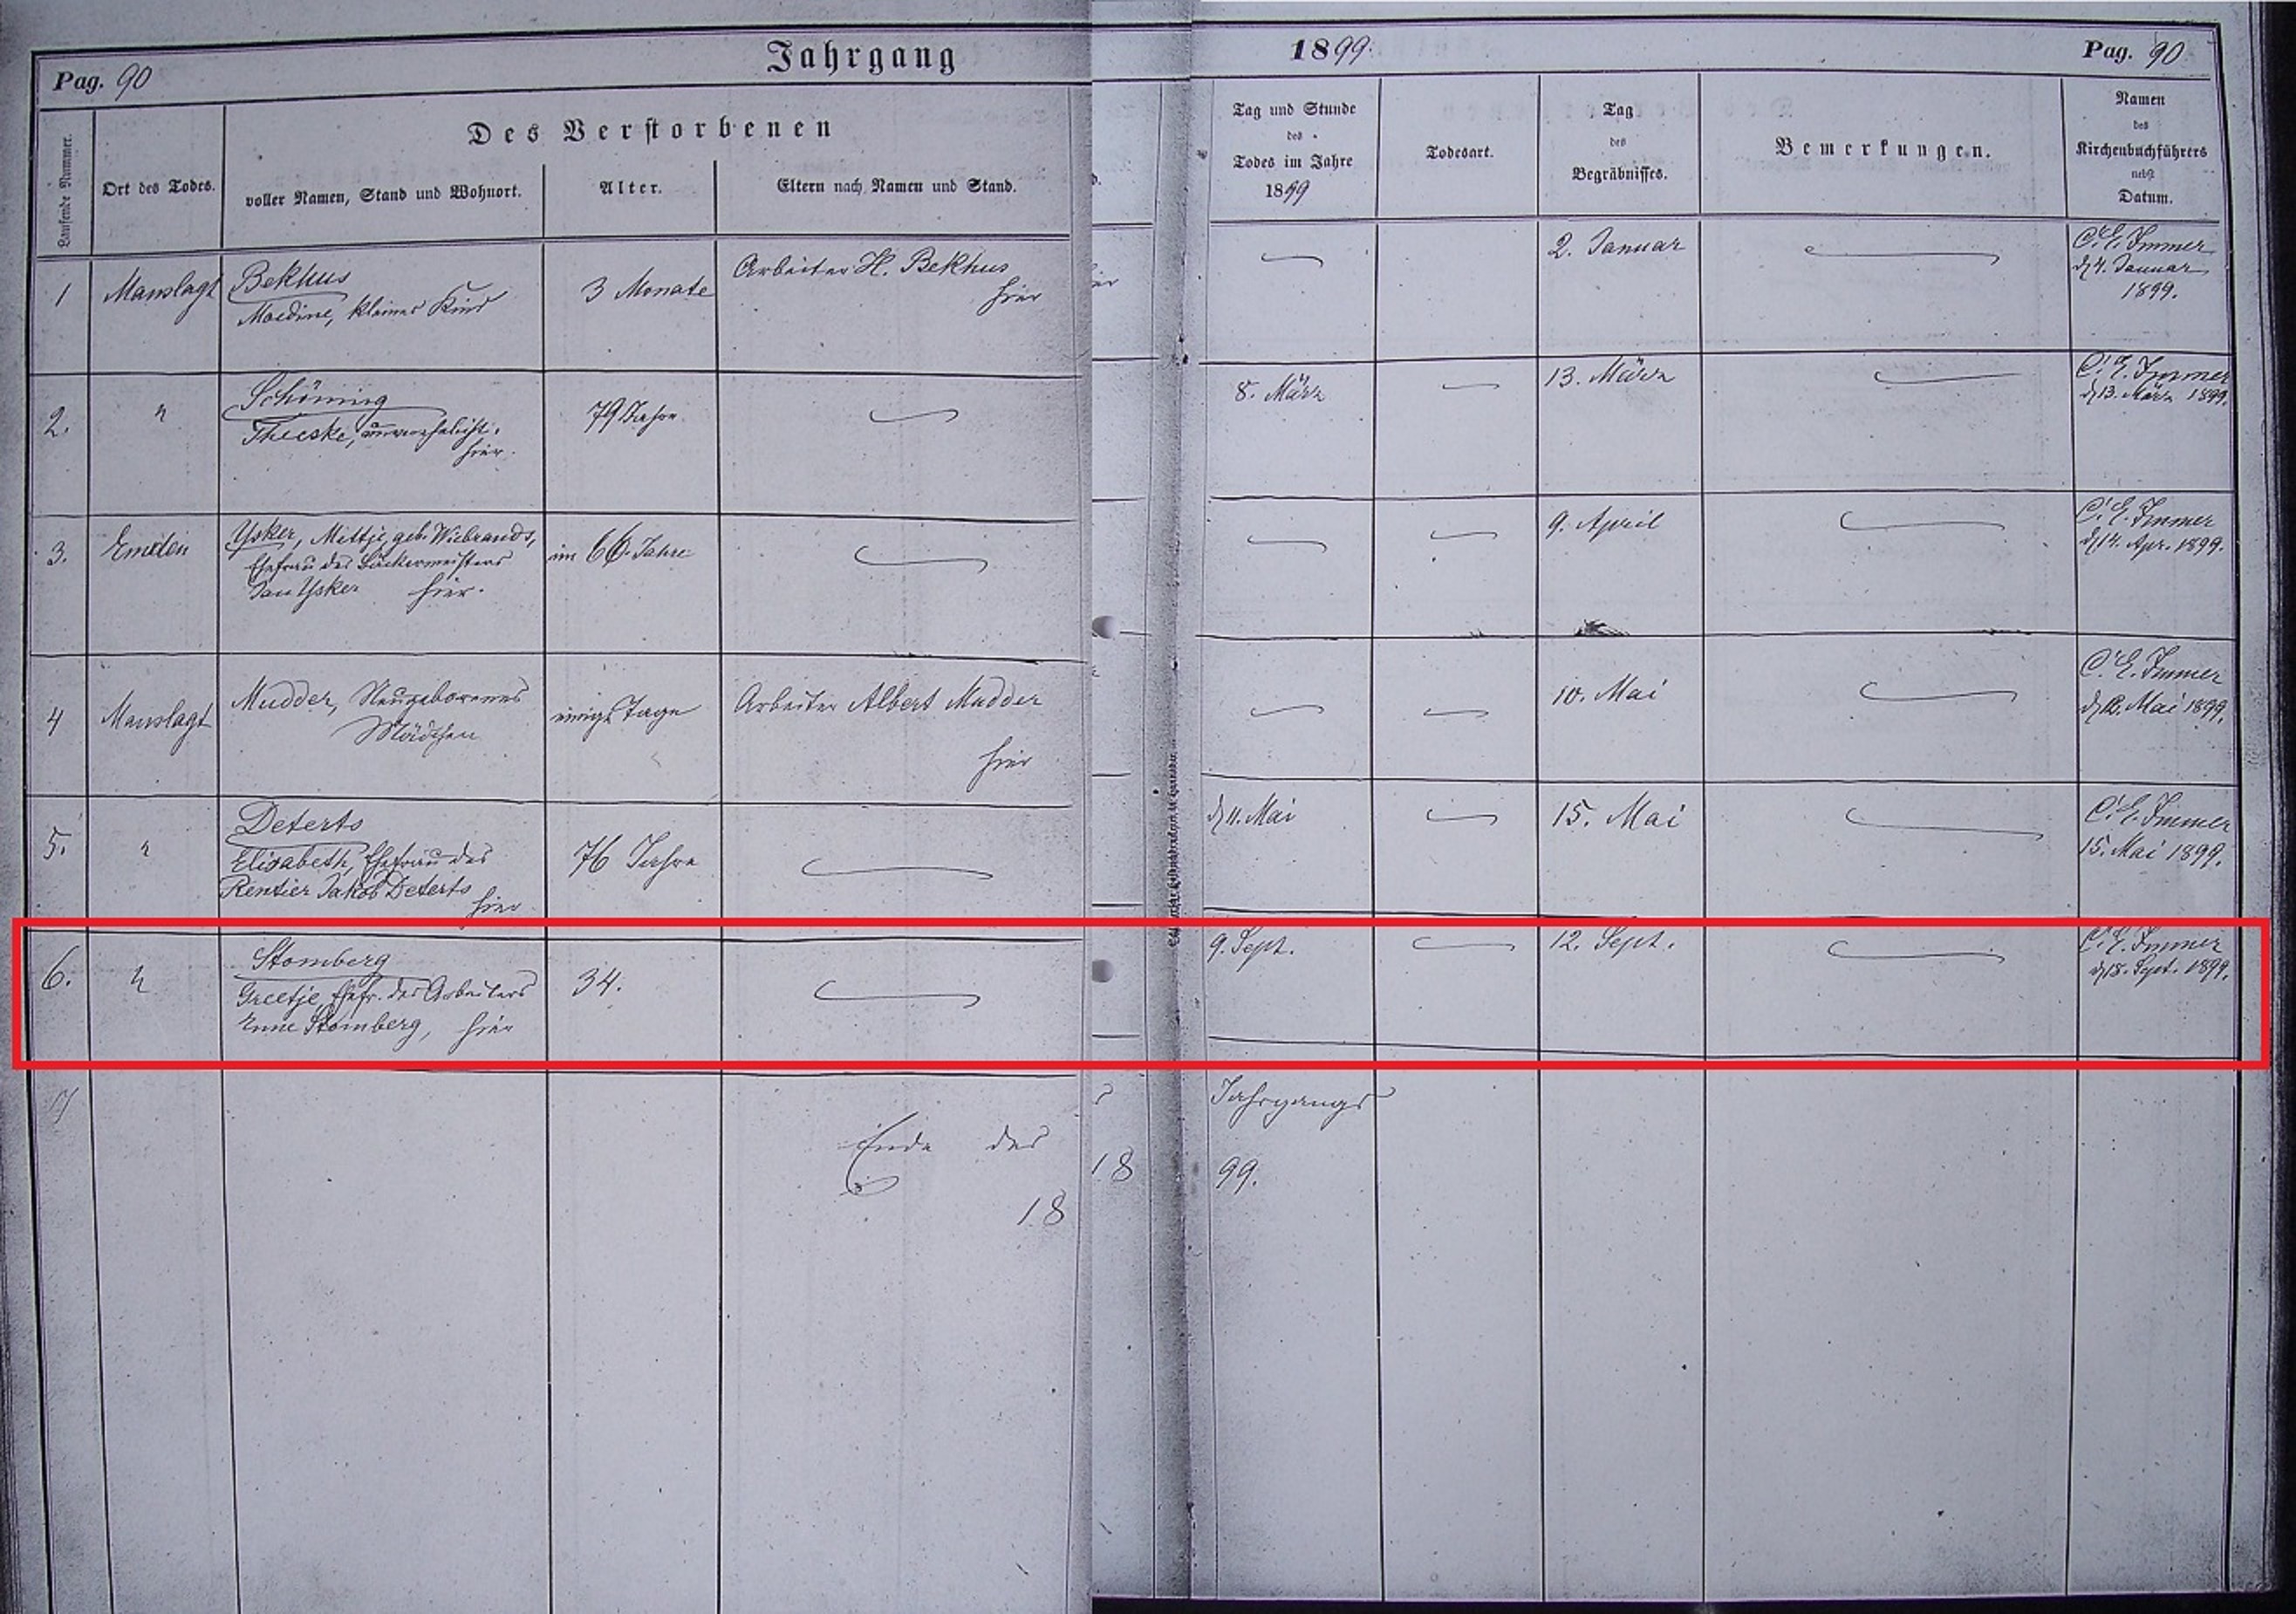 Jahrgang 1899.
Pag. 90
Pag. 90
Laufende Nummer.
Ort des Todes.
Des Verstorbenen
voller Namen, Stand und Wohnort.
Alter.
Eltern nach Namen und Stand.
Tag und Stunde
des
Todes im Jahre
1899
Todesart.
Tag
des
Begräbnisses.
Bemerkungen.
Namen
des
Kirchenbuchführers
nebst
Datum.
1 Manslagt
Bekhus
Moedine, kleines Kind
3 Monate
Arbeiter H. Bekhus
hier
2. Januar
C. E. Immer
d 4. Januar
1899.
2. "
Schöning
Theeske, unverehelicht.
hier.
79 Jahre
8. März
13. März
C. E. Immer
d 13. März 1899.
3. Emden
Ysker, Mittje, geb. Wiebrands,
Ehefrau des Bäckermeisters
Jan Ysker hier.
im 66. Jahre
9. April
C. E. Immer
d 14. Apr. 1899.
4 Manslagt
Mudder, Neugeborenes
Mädchen
einige Tage
Arbeiter Albert Mudder
hier
10. Mai
C. E. Immer
d 12. Mai 1899.
5. "
Deterts
Elisabeth, Ehefrau des
Rentier Jakob Deterts
hier
76 Jahre
d 11. Mai
15. Mai
C. E. Immer
15. Mai 1899.
6. "
Stomberg
Greetje, Ehefr. des Arbeiters
Enne Stomberg, hier
34.
9. Sept.
12. Sept.
C. E. Immer
d 18. Sept. 1899.
7
Ende des Jahrgangs
18 18 99.